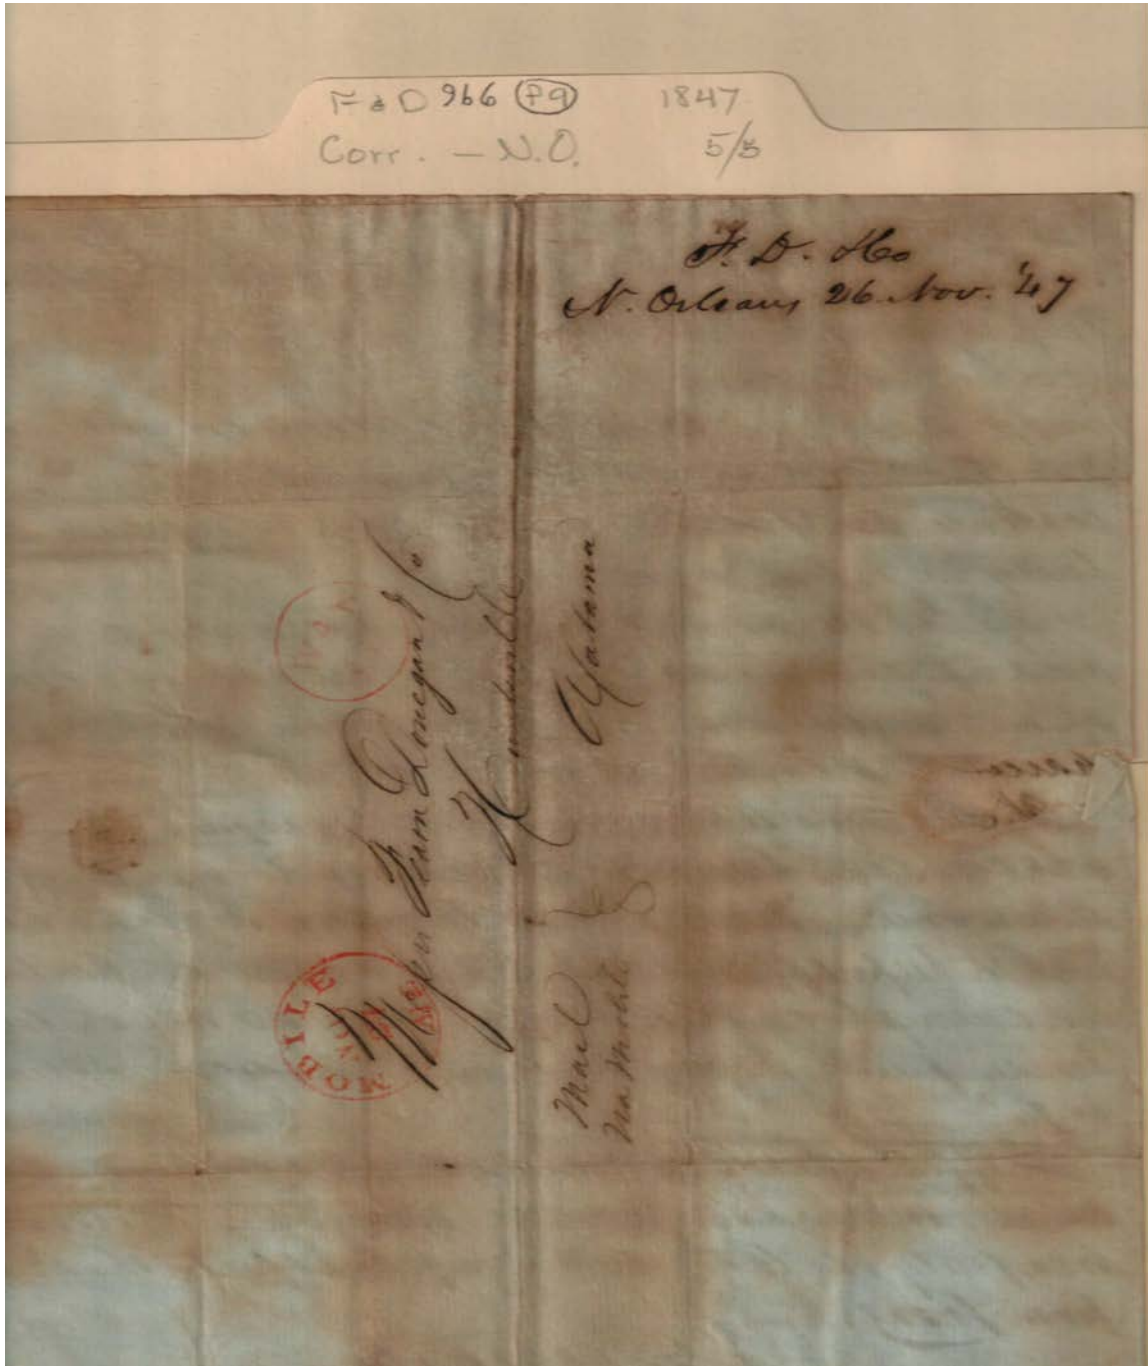 F & D 966 P9 1847
Corr. - N.O. 5/5
F. D. &Co
N. Orleans 26 Nov. '47
Messrs Fearn Donegan & Co
Huntsville
Alabama
Mail
via Mobile
MOBILE
NOV